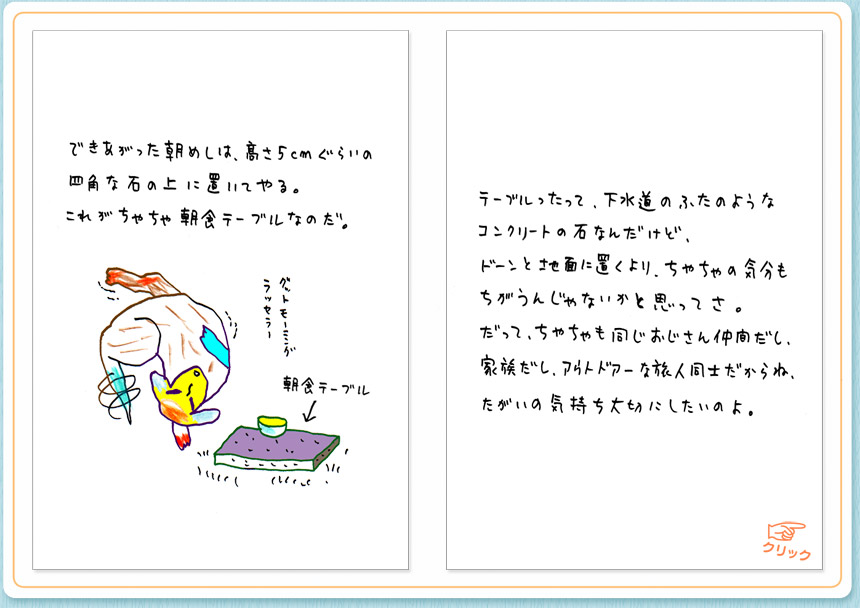 できあがった朝めしは、高さ5cmぐらいの
四角な石の上に置いてやる。
これがちゃちゃ朝食テーブルなのだ。
グットモーニング
ラッセラー
朝食テーブル
テーブルったって、下水道のふたのような
コンクリートの石なんだけど、
ドーンと地面に置くより、ちゃちゃの気分も
ちがうんじゃないかと思ってさ。
だって、ちゃちゃも同じおじさん仲間だし、
家族だし、アウトドアーな旅人同士だからね、
たがいの気持ち大切にしたいのよ。
クリック